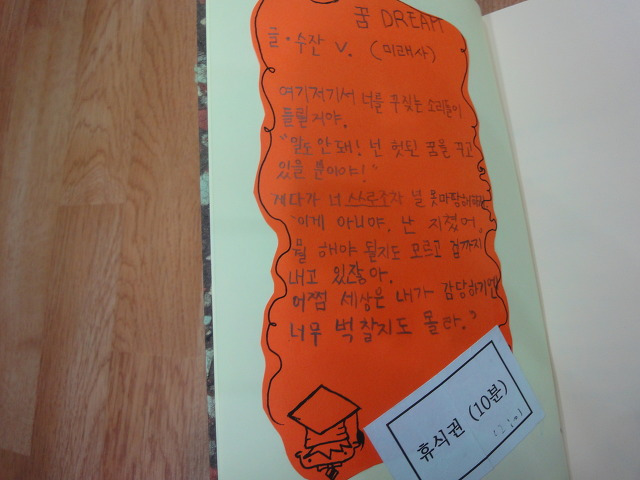 꿈 DREAM
글·수잔 V. (미래사)
여기저기서 너를 꾸짖는 소리들이
들릴 지야.
"말도 안 돼! 넌 헛된 꿈을 꾸고
있을 뿐이야!"
게다가 너 스스로조차 널 못마땅해하며
"이게 아니야. 난 지쳤어.
뭘 해야 될지도 모르고 겁까지
내고 있잖아.
어쩜 세상은 내가 감당하기엔
너무 벅찰지도 몰라."
휴식권 (10분)